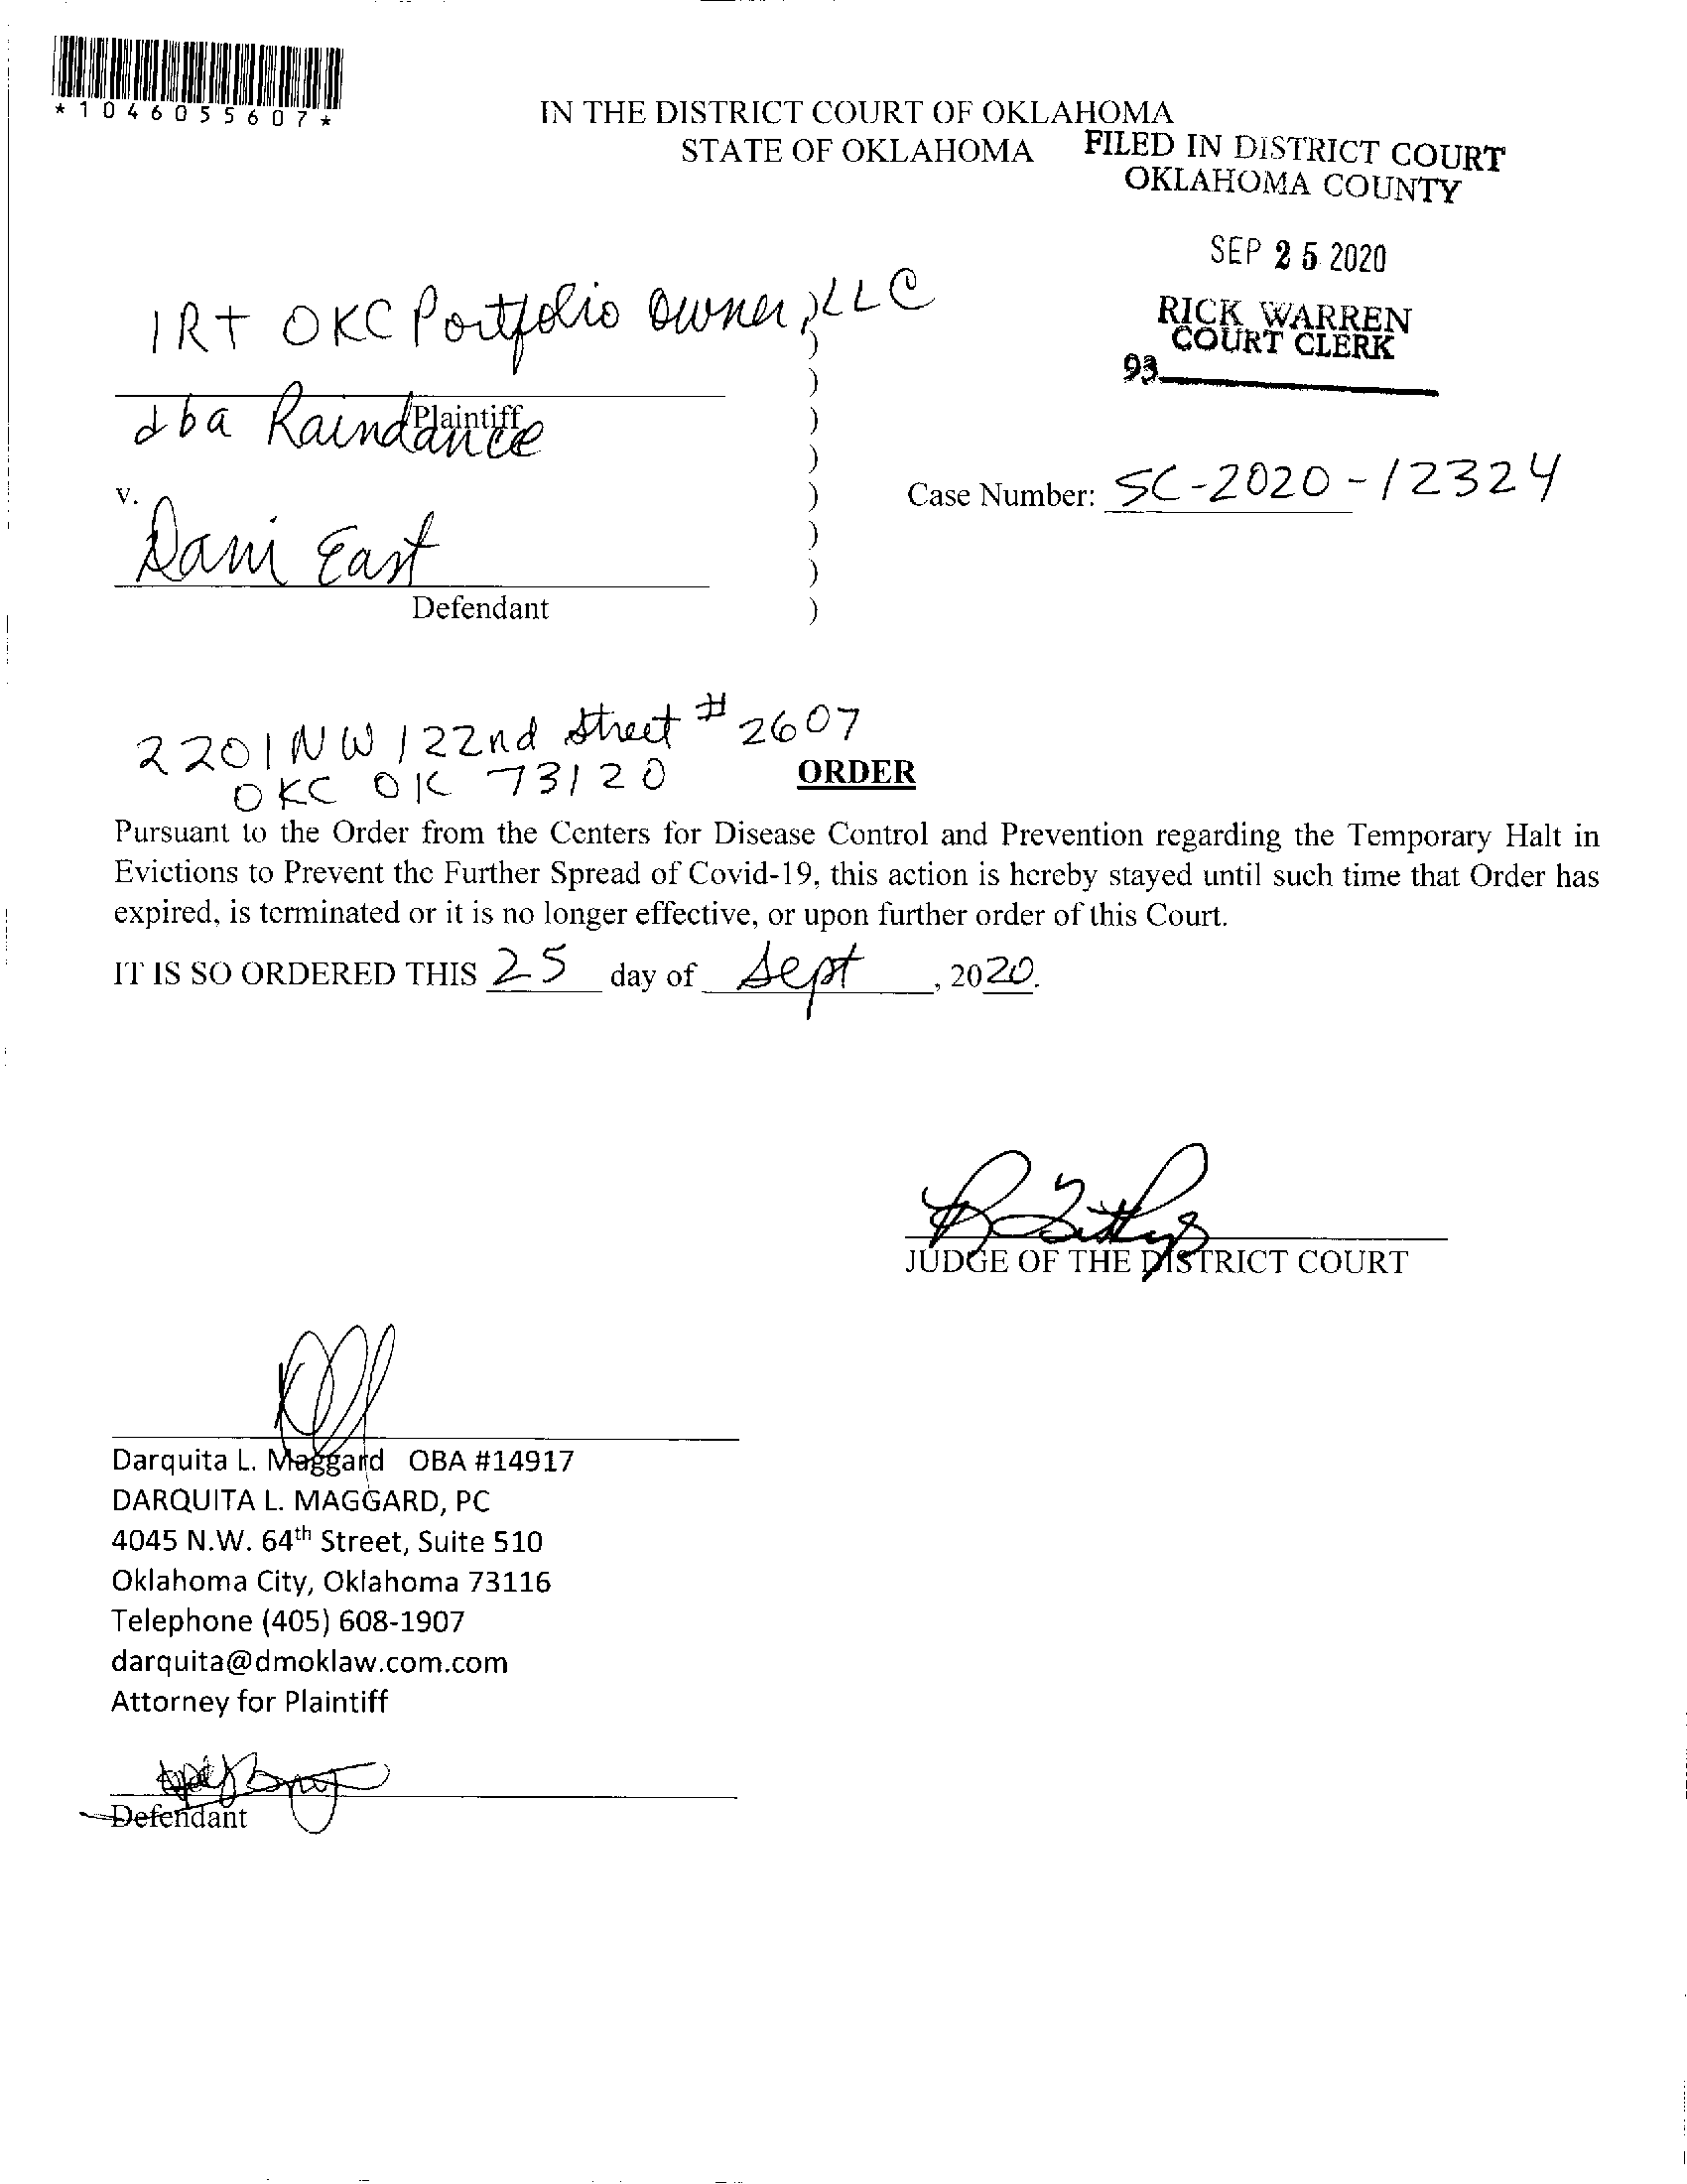 *1046055607*
IN THE DISTRICT COURT OF OKLAHOMA
STATE OF OKLAHOMA
FILED IN DISTRICT COURT
OKLAHOMA COUNTY
SEP 25 2020
RICK WARREN
COURT CLERK
93
IRT OKC Portfolio Owner, LLC
)
)
dba Raindance
Plaintiff
)
)
v.
)
Case Number: SC-2020-12324
Dani East
)
)
Defendant
)
2201 NW 122nd Street # 2607
OKC OK 73120
ORDER
Pursuant to the Order from the Centers for Disease Control and Prevention regarding the Temporary Halt in
Evictions to Prevent the Further Spread of Covid-19, this action is hereby stayed until such time that Order has
expired, is terminated or it is no longer effective, or upon further order of this Court.
IT IS SO ORDERED THIS 25 day of Sept, 2020.
JUDGE OF THE DISTRICT COURT
Darquita L. Maggard OBA #14917
DARQUITA L. MAGGARD, PC
4045 N.W. 64th Street, Suite 510
Oklahoma City, Oklahoma 73116
Telephone (405) 608-1907
darquita@dmoklaw.com.com
Attorney for Plaintiff
Defendant